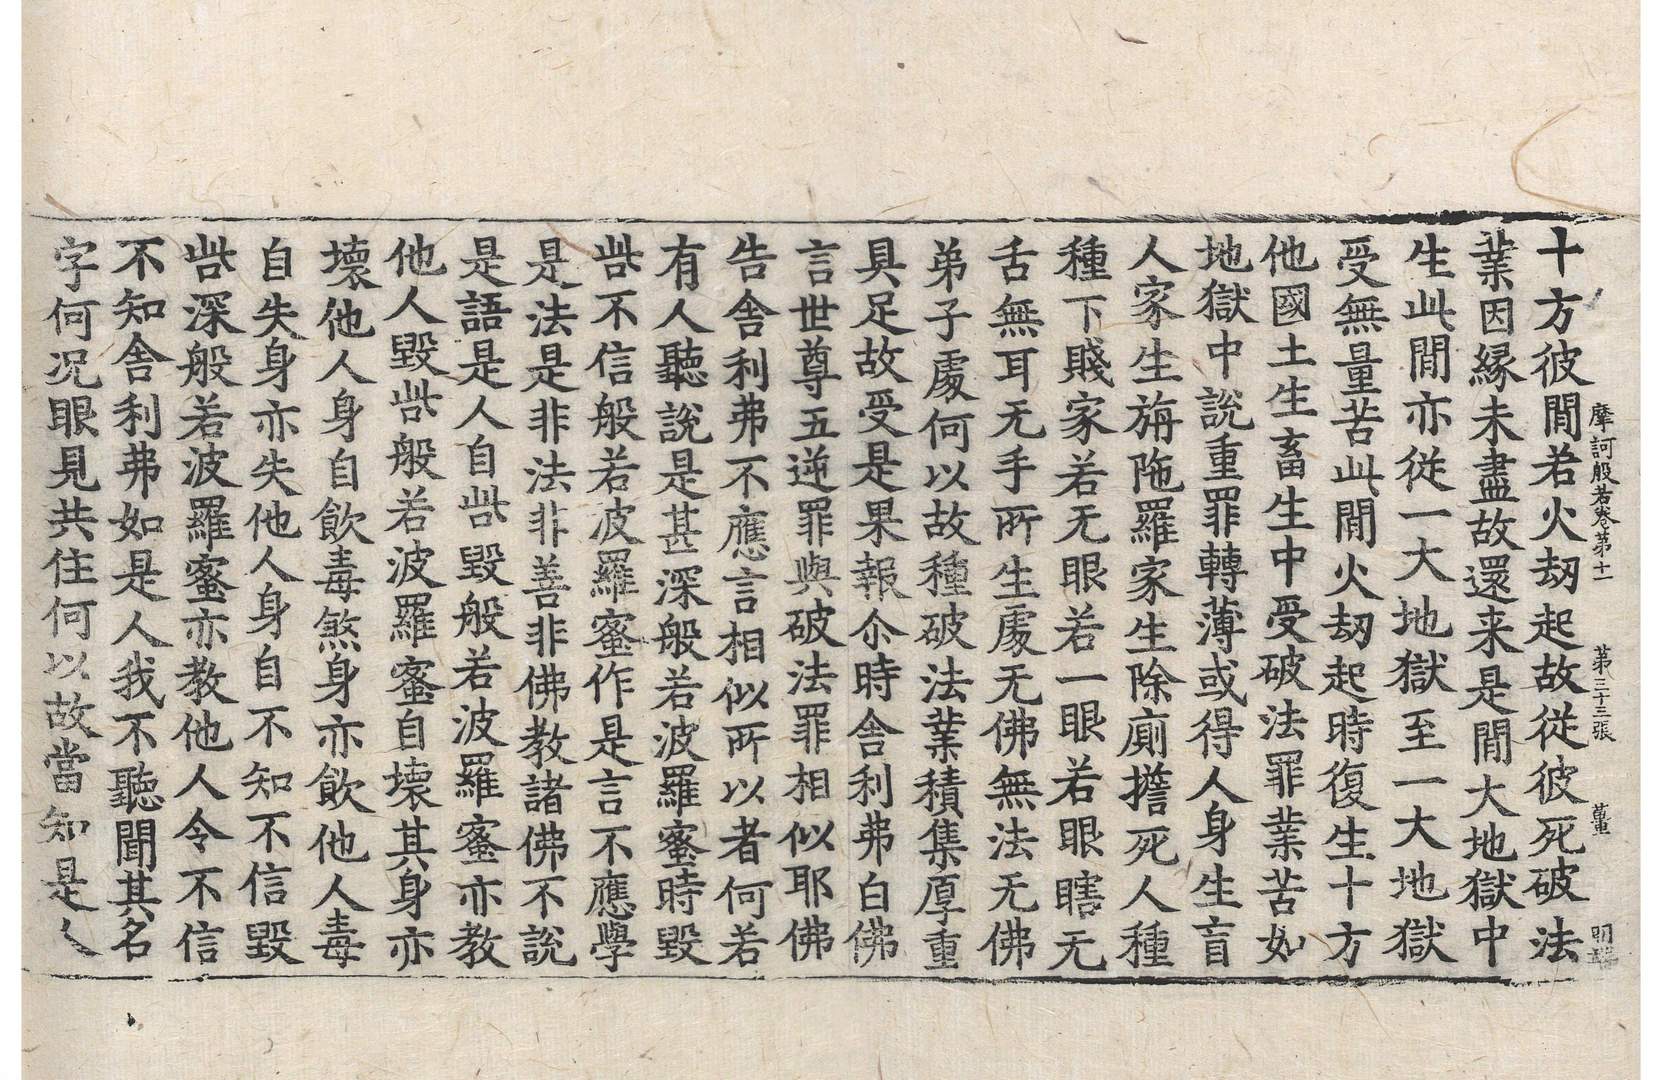 摩訶般若卷第十一 第三十三張 董
十方彼間若火劫起故從彼死破法
業因縁未盡故還来是間大地獄中
生此間亦從一大地獄至一大地獄
受無量苦此間火劫起時復生十方
他國土生畜生中受破法罪業苦如
地獄中說重罪轉薄或得人身生盲
人家生旃陁羅家生除廁擔死人種
種下賤家若无眼若一眼若眼瞎无
舌無耳无手所生處无佛無法无佛
弟子處何以故種破法業積集厚重
具足故受是果報尒時舍利弗白佛
言世尊五逆罪與破法罪相似耶佛
告舍利弗不應言相似所以者何若
有人聽說是甚深般若波羅蜜時毀
呰不信般若波羅蜜作是言不應學
是法是非法非善非佛教諸佛不說
是語是人自呰毀般若波羅蜜亦教
他人毀呰般若波羅蜜自壞其身亦
壞他人身自飲毒煞身亦飲他人毒
自失身亦失他人身自不知不信毀
呰深般若波羅蜜亦教他人令不信
不知舍利弗如是人我不聽聞其名
字何況眼見共住何以故當知是人